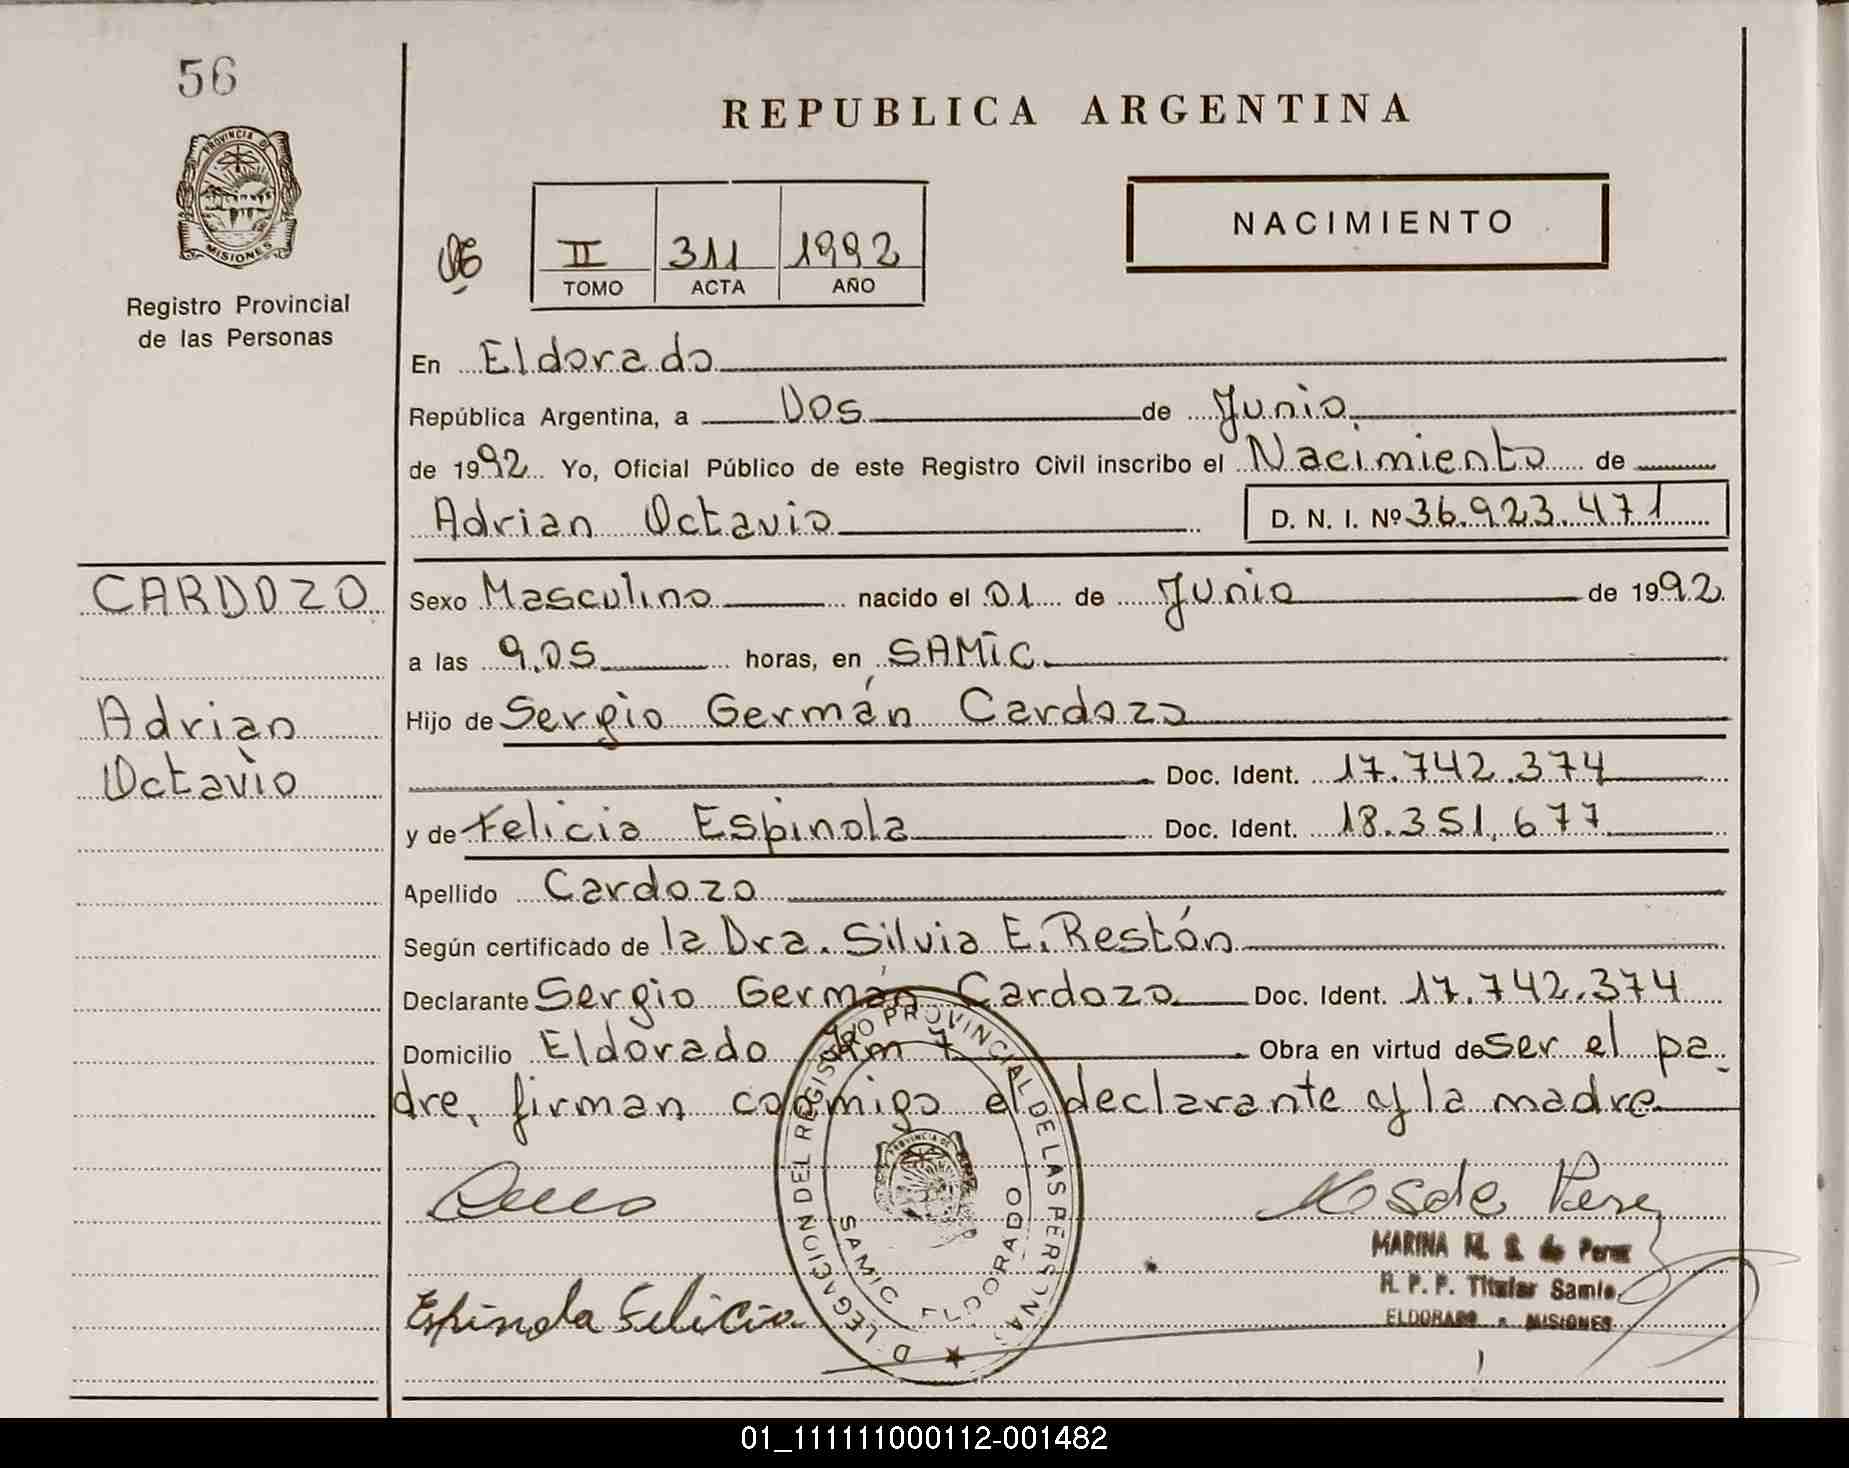 56
PROVINCIA DE
MISIONES
Registro Provincial
de las Personas
REPUBLICA ARGENTINA
NACIMIENTO
II 311 1992
TOMO ACTA AÑO
En Eldorado
República Argentina, a Dos de Junio
de 1992 Yo, Oficial Público de este Registro Civil inscribo el Nacimiento de
Adrian Octavio D. N. I. Nº 36.923.471
CARDOZO
Adrian
Octavio
Sexo Masculino nacido el 01 de Junio de 1992.
a las 9.05 horas, en SAMIC.
Hijo de Sergio Germán Cardozo
Doc. Ident. 17.742.374
y de Felicia Espinola Doc. Ident. 18.351.677
Apellido Cardozo
Según certificado de la Dra. Silvia E. Restón
Declarante Sergio Germán Cardozo Doc. Ident. 17.742.374
Domicilio Eldorado Km 7 Obra en virtud de ser el pa-
dre, firman conmigo el declarante y la madre
DELEGACION DEL REGISTRO PROVINCIAL DE LAS PERSONAS
PROVINCIA DE
SAMIC ELDORADO
Espinola Felicia
MARINA M. S. de Perez
R. P. P. Titular Samic
ELDORADO - MISIONES
01_111111000112-001482